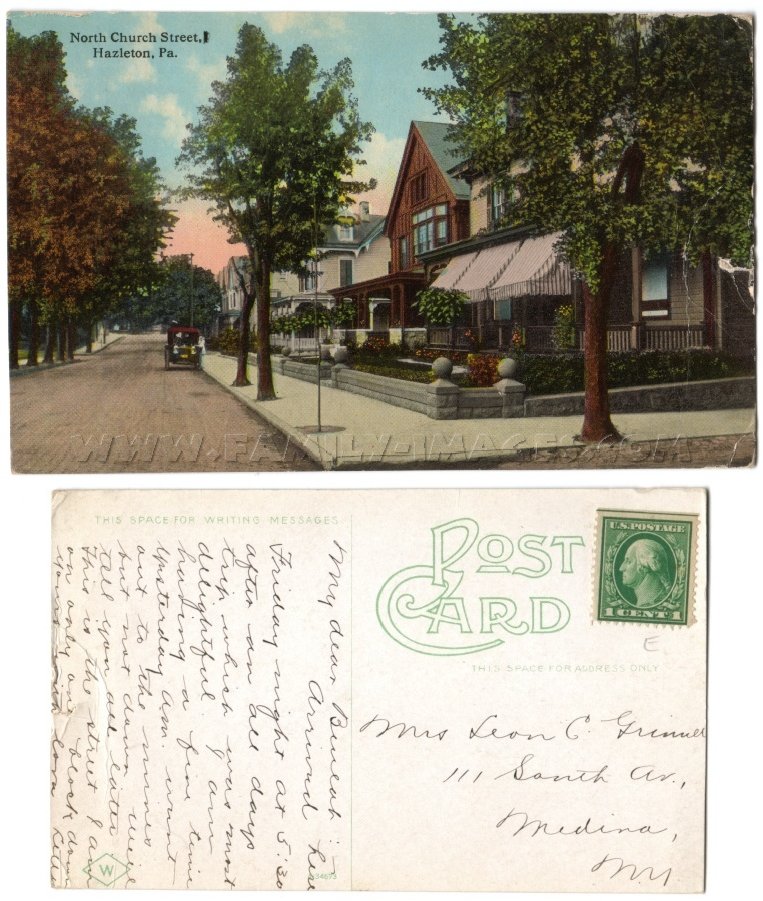 North Church Street,
Hazleton, Pa.
WWW.FAMILY-IMAGES.COM
THIS SPACE FOR WRITING MESSAGES
My dear Beulah :-
Arrived here
Friday night at 5:30
after an all days
trip which was most
delightful. I am
having a fine time
Yesterday am. went
out to the mines
but not down. Will
tell you all later
This is the street I am
on only one block down
Yours with love
W
POST
CARD
THIS SPACE FOR ADDRESS ONLY
U.S. POSTAGE
1 CENT 1
E
Mrs Leon C. Grinnell
111 South Av.,
Medina,
N.Y.